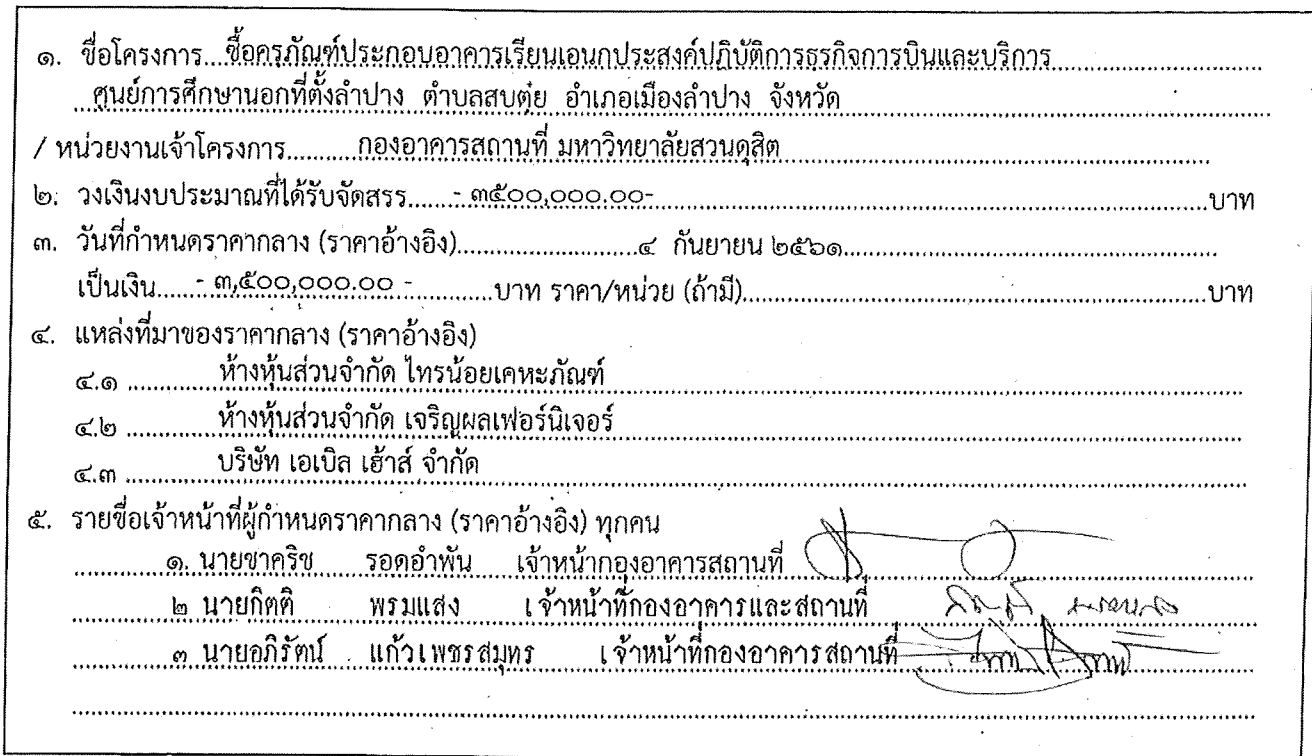 ๑. ชื่อโครงการ....ซื้อครุภัณฑ์ประกอบอาคารเรียนเอนกประสงค์ปฏิบัติการธุรกิจการบินและบริการ
ศูนย์การศึกษานอกที่ตั้งลำปาง ตำบลสบตุ๋ย อำเภอเมืองลำปาง จังหวัด
/ หน่วยงานเจ้าโครงการ..........กองอาคารสถานที่ มหาวิทยาลัยสวนดุสิต
๒. วงเงินงบประมาณที่ได้รับจัดสรร.......- ๓๕๐๐,๐๐๐.๐๐-.......บาท
๓. วันที่กำหนดราคากลาง (ราคาอ้างอิง).......๔ กันยายน ๒๕๖๑.......
เป็นเงิน.......- ๓,๕๐๐,๐๐๐.๐๐ -.......บาท ราคา/หน่วย (ถ้ามี).......บาท
๔. แหล่งที่มาของราคากลาง (ราคาอ้างอิง)
๔.๑ ห้างหุ้นส่วนจำกัด ไทรน้อยเคหะภัณฑ์
๔.๒ ห้างหุ้นส่วนจำกัด เจริญผลเฟอร์นิเจอร์
๔.๓ บริษัท เอเบิล เฮ้าส์ จำกัด
๕. รายชื่อเจ้าหน้าที่ผู้กำหนดราคากลาง (ราคาอ้างอิง) ทุกคน
๑. นายชาคริช รอดอำพัน เจ้าหน้ากองอาคารสถานที่
๒ นายกิตติ พรมแสง เจ้าหน้าที่กองอาคารและสถานที่
๓ นายอภิรัตน์ แก้วเพชรสมุทร เจ้าหน้าที่กองอาคารสถานที่